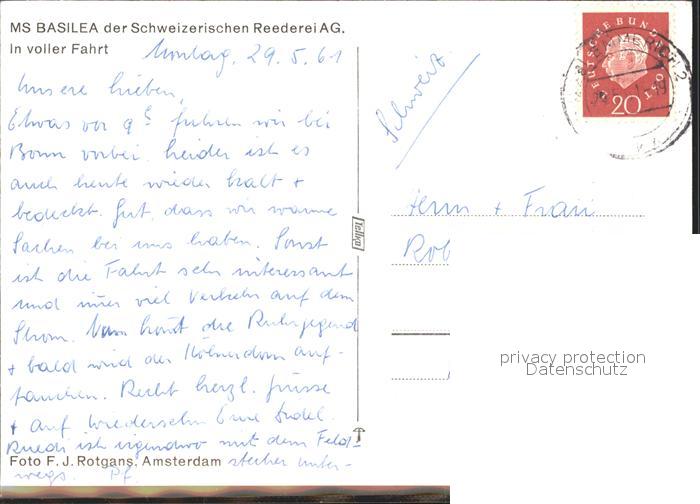 MS BASILEA der Schweizerischen Reederei AG.
In voller Fahrt
Montag, 29.5.61
Unsere Lieben,
Etwas vor 9h fuhren wir bei
Bonn vorbei. Leider ist es
auch heute wieder kalt +
bedeckt. Gut, dass wir warme
Sachen bei uns haben. Sonst
ist die Fahrt sehr interessant
und immer viel Verkehr auf dem
Strom. Nun kommt die Ruhrgegend
+ bald wird der Kölnerdom auf-
tauchen. Recht herzl. Grüsse
+ auf Wiedersehn Eure
Ruedi ist irgendwo mit dem Feld-
stecher unter-
wegs. Pf.
Foto F. J. Rotgans, Amsterdam
Tellko
DEUTSCHE BUNDESPOST
20
Schweiz
Herrn + Frau
Rob
privacy protection
Datenschutz